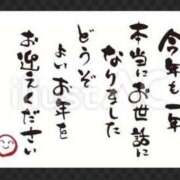 今年も
本当にお世話に
なりました
どうぞ
よいお年を
お迎えください
illustAC